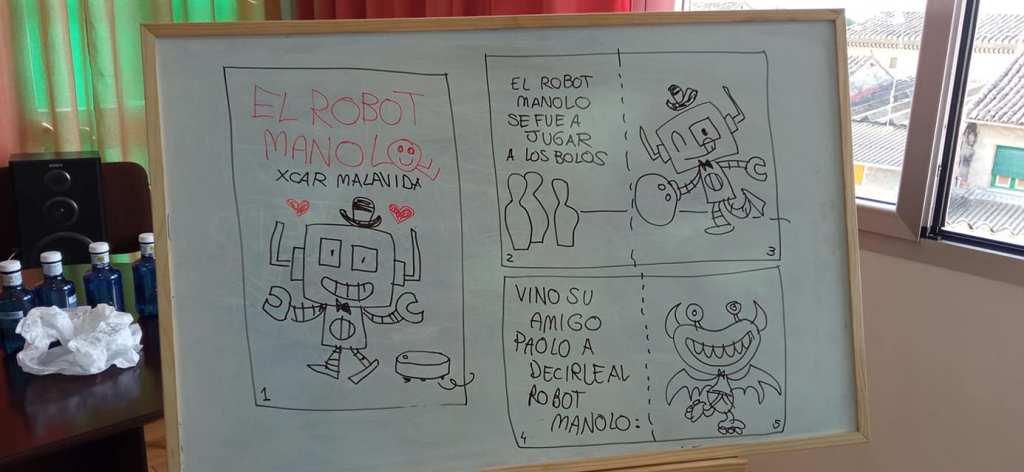 EL ROBOT
MANOLO
XCAR MALAVIDA
1
EL ROBOT
MANOLO
SE FUE A
JUGAR
A LOS BOLOS
2
3
VINO SU
AMIGO
PAOLO A
DECIRLE AL
ROBOT
MANOLO:
4
5